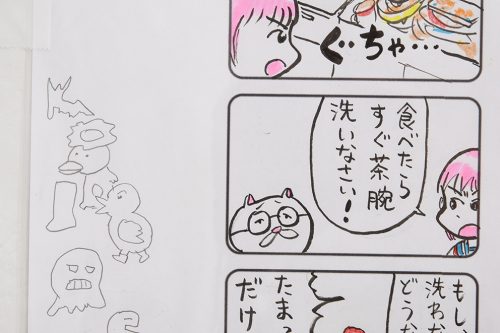 ぐちゃ…
食べたら
すぐ茶腕
洗いなさい!
もし、
洗わな
どうな
たまる
だけ